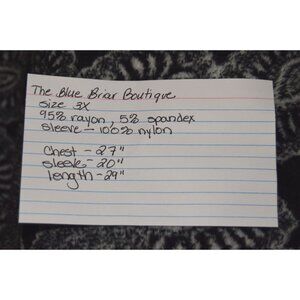 The Blue Briar Boutique
size 3X
95% rayon, 5% spandex
sleeve - 100% nylon
Chest - 27"
sleeve - 20"
length - 29"